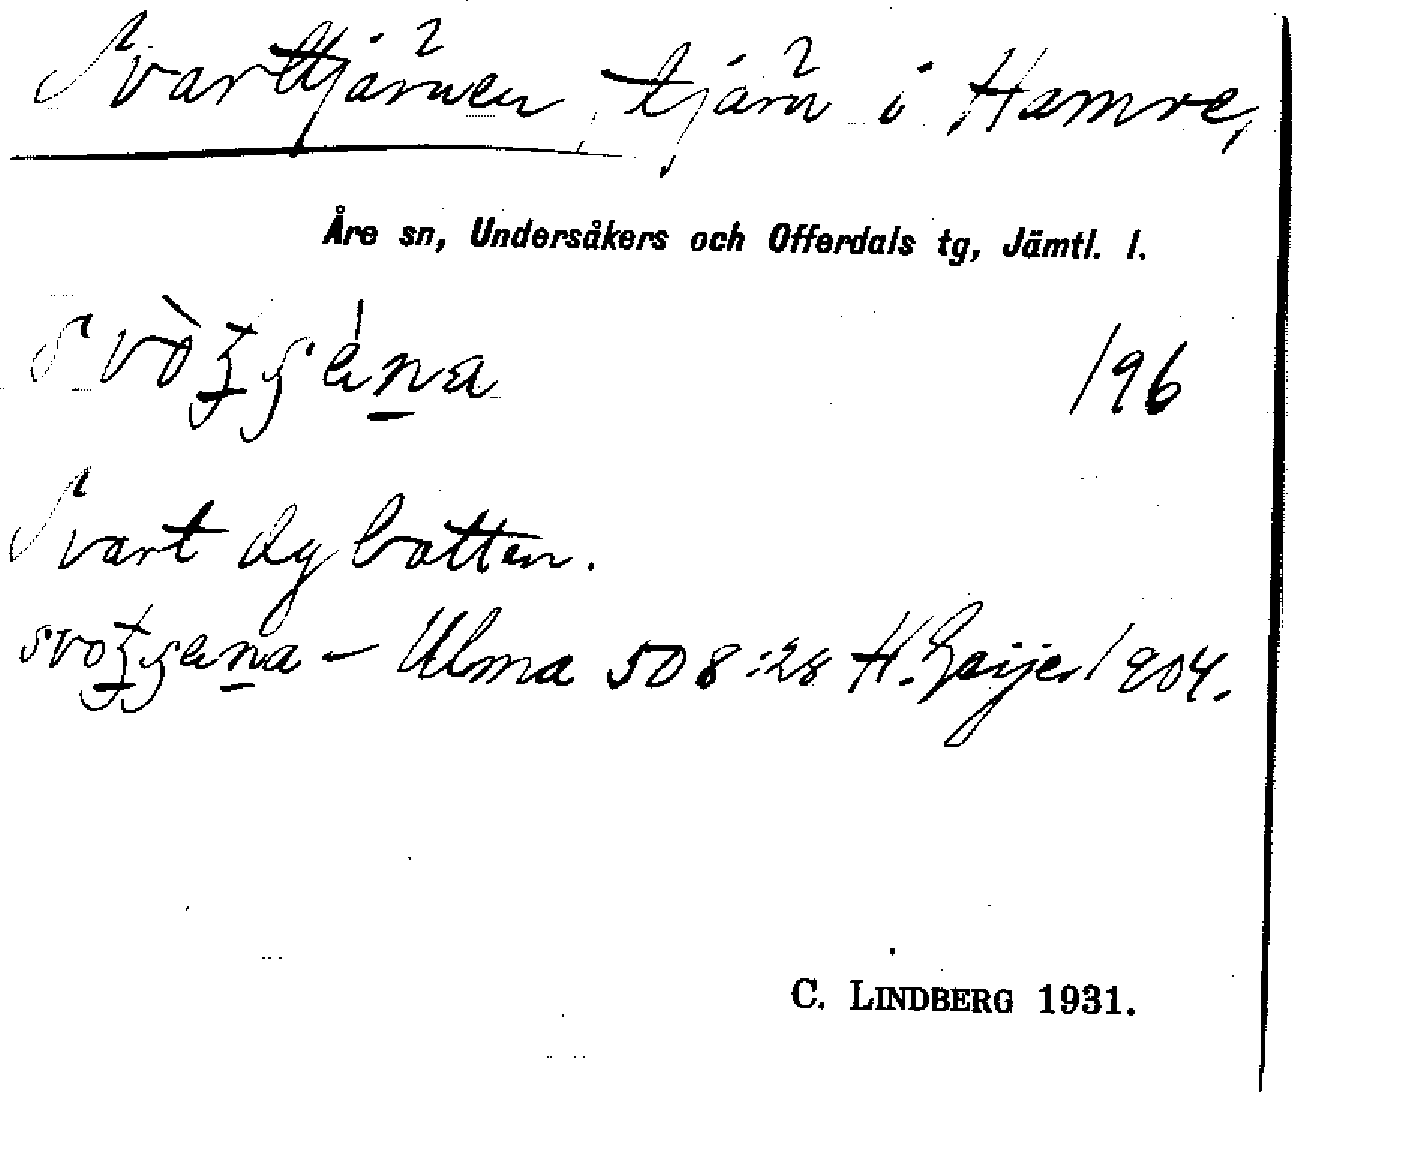 Svarttjärnen, tjärn i Hamre,
Åre sn, Undersåkers och Offerdals tg, Jämtl. l.
196
Svart dybotten.
— Ulma 508:28 H. Geijer 1904.
C. LINDBERG 1931.